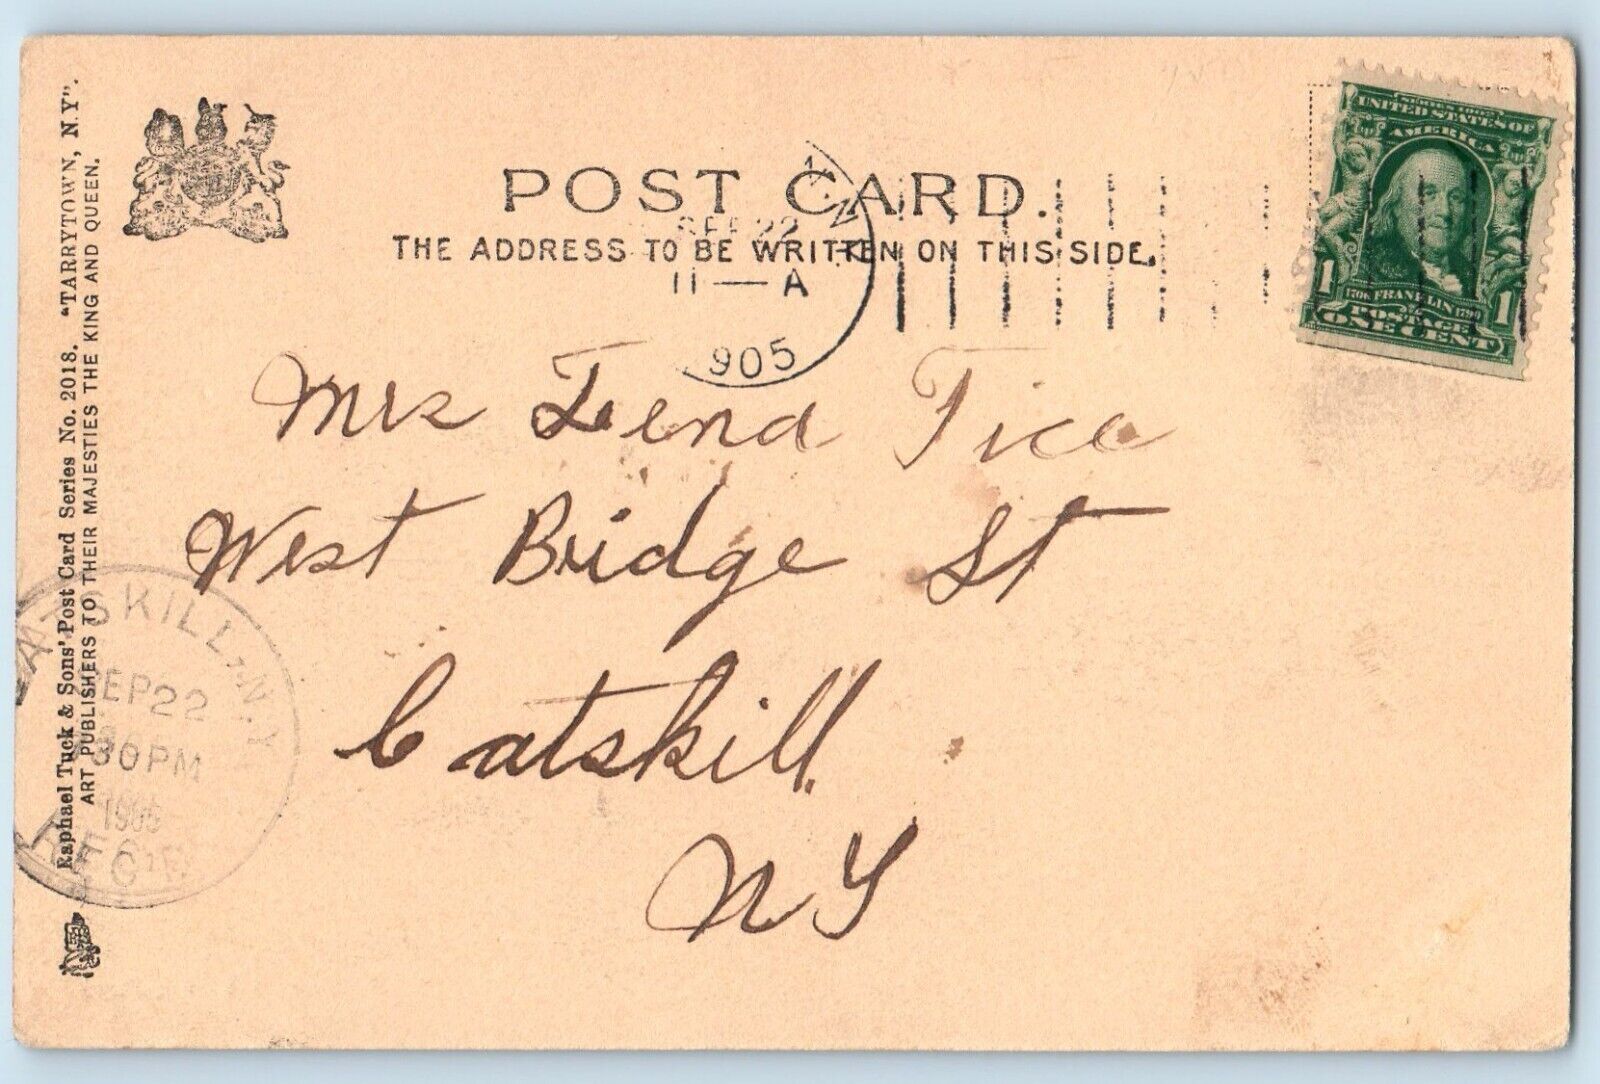 Raphael Tuck & Sons' Post Card Series No. 2018. "TARRYTOWN, N.Y".
ART PUBLISHERS TO THEIR MAJESTIES THE KING AND QUEEN.
POST CARD.
THE ADDRESS TO BE WRITTEN ON THIS SIDE.
SEP 22
11—A
1905
UNITED STATES OF
AMERICA
1706 FRANKLIN 1790
1 POSTAGE 1
ONE CENT
Mrs Lena Tice
West Bridge St
Catskill
NY
CATSKILL, N.Y.
SEP 22
30PM
1905
REC'D